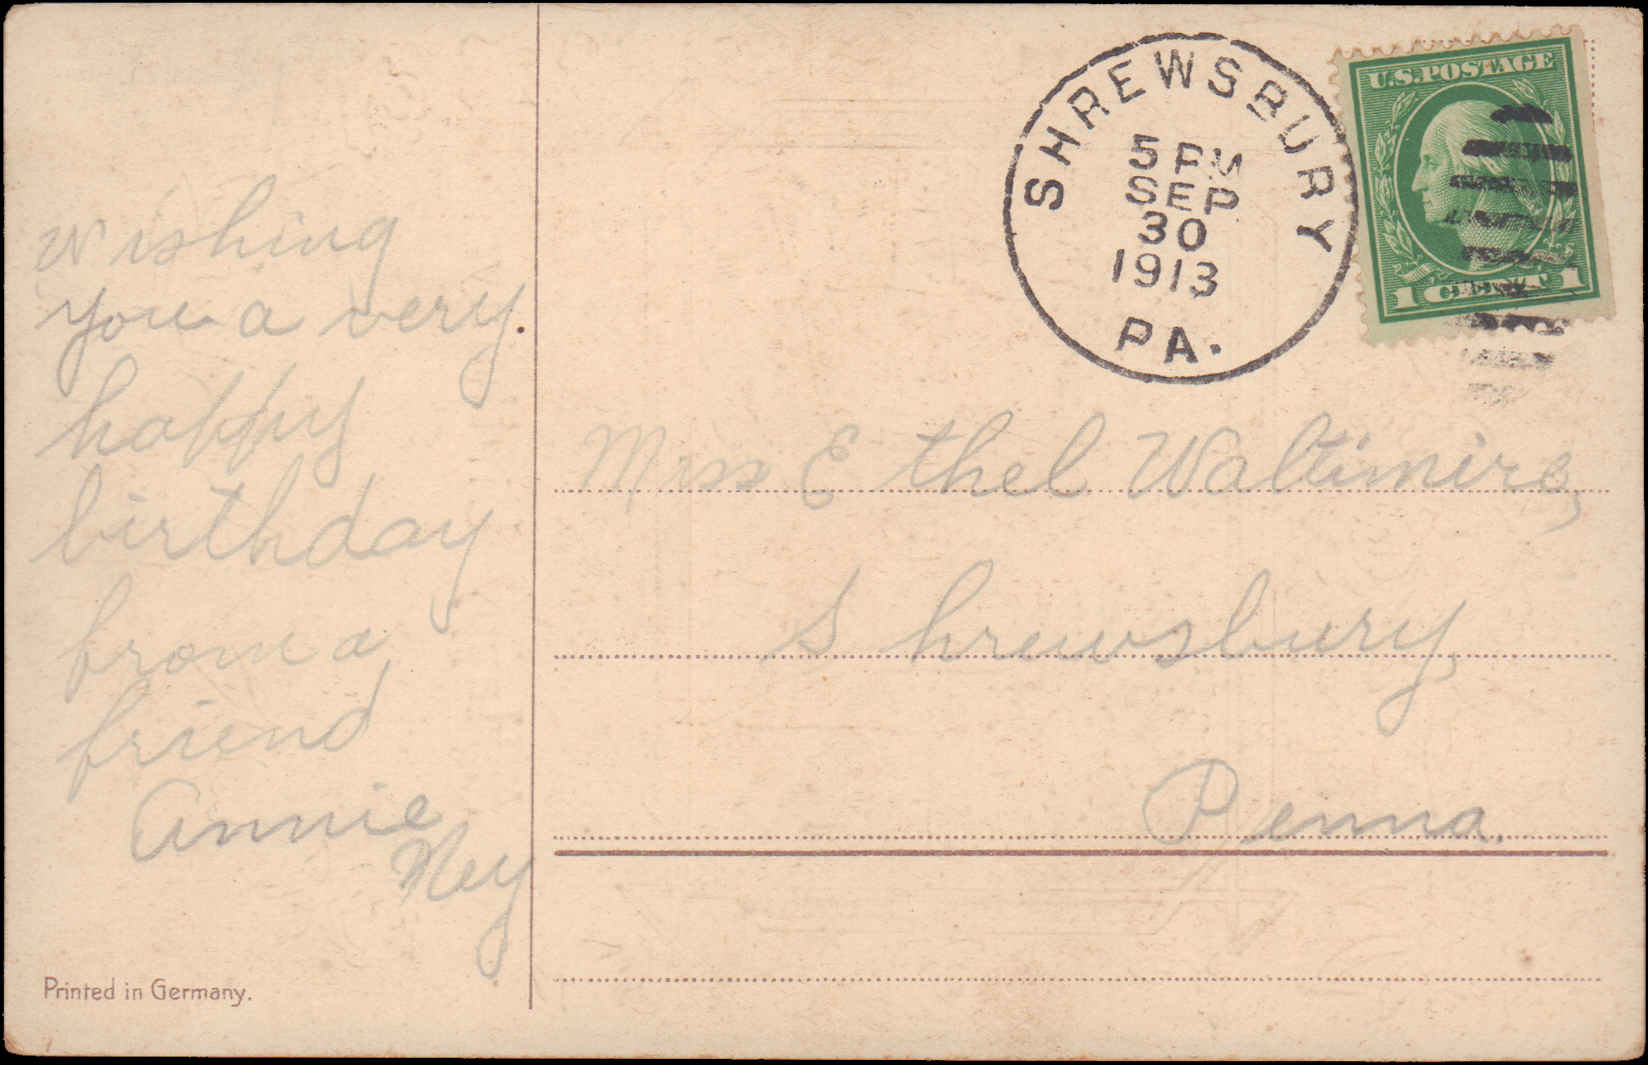 Wishing
you a very
happy
birthday
from a
friend
Annie
Ney
Printed in Germany.
SHREWSBURY
5 PM
SEP
30
1913
PA.
U.S. POSTAGE
1 CENT 1
Miss Ethel Waltimire,
Shrewsbury,
Penna.